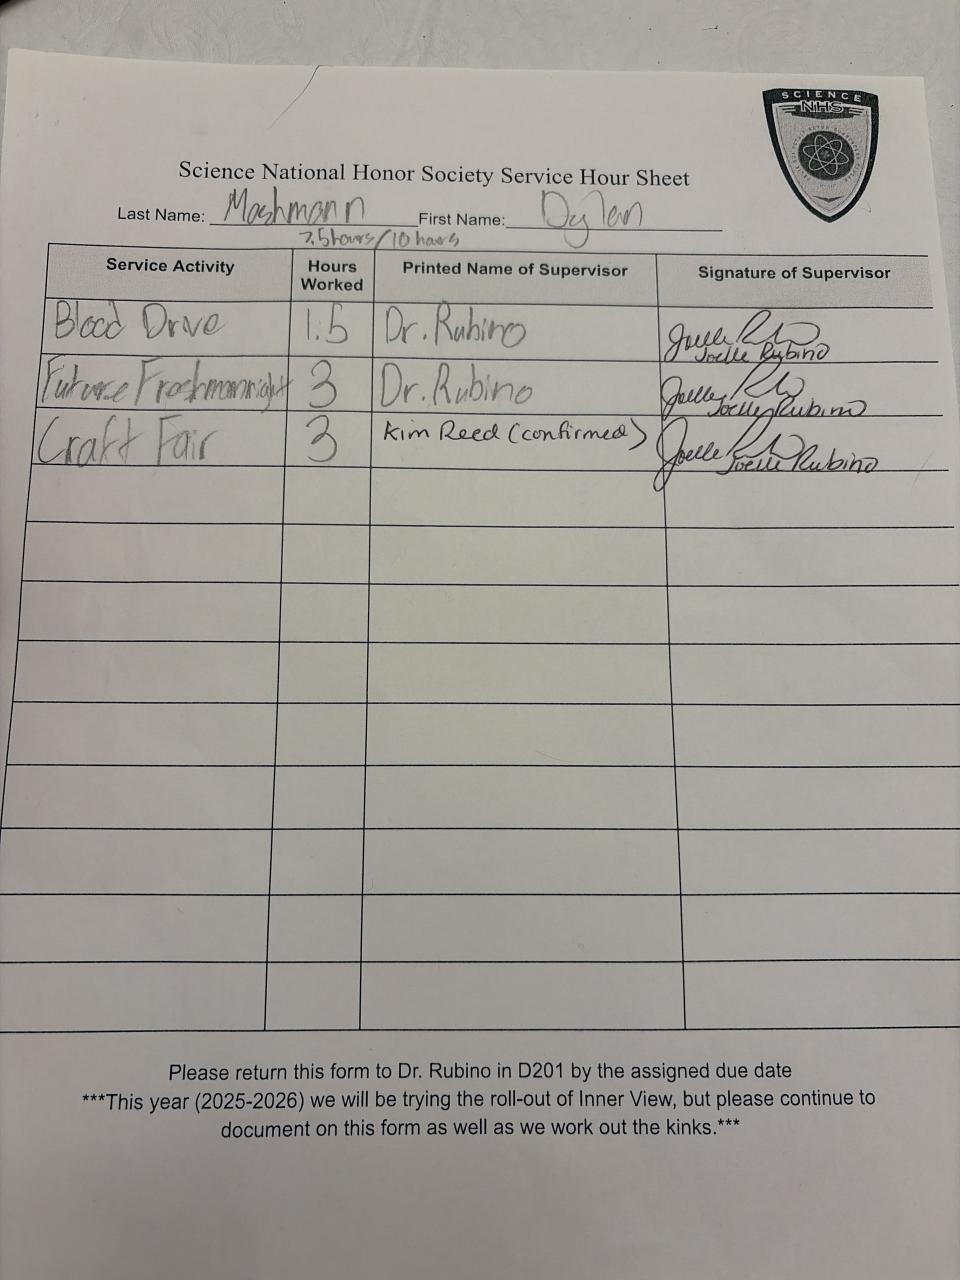 SCIENCE
NHS
Science National Honor Society Service Hour Sheet
Last Name: Mashmann First Name: Dylan
7.5 hours/10 hours
Service Activity Hours Worked Printed Name of Supervisor Signature of Supervisor
Blood Drive 1.5 Dr. Rubino Joelle Rubino
Future Freshman night 3 Dr. Rubino Joelle Rubino
Craft Fair 3 Kim Reed (confirmed) Joelle Rubino
Please return this form to Dr. Rubino in D201 by the assigned due date
***This year (2025-2026) we will be trying the roll-out of Inner View, but please continue to
document on this form as well as we work out the kinks.***